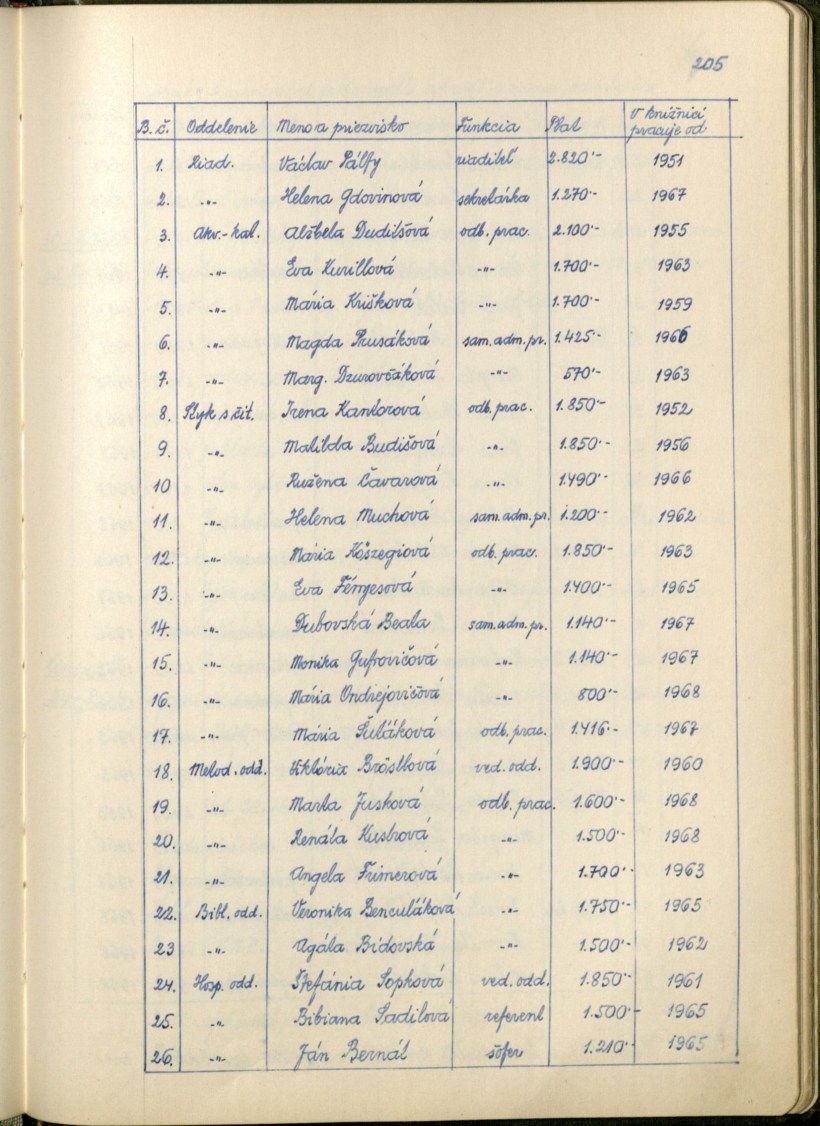 205
B. č. Oddelenie Meno a priezvisko Funkcia Plat V knižnici pracuje od
1. Riad. Václav Pálfy riaditeľ 2.820'- 1951
2. -„- Helena Gdovinová sekretárka 1.270'- 1967
3. Akv.-kat. Alžbeta Dudišová odb. prac. 2.100'- 1955
4. -„- Eva Kurillová -„- 1.700'- 1963
5. -„- Mária Krišková -„- 1.700'- 1959
6. -„- Magda Prusáková sam. adm. pr. 1.425'- 1966
7. -„- Marg. Dzurovčáková -„- 570'- 1963
8. Styk s čit. Irena Kantorová odb. prac. 1.850'- 1952
9. -„- Matilda Budišová -„- 1.850'- 1956
10 -„- Ružena Čavarová -„- 1.490'- 1966
11. -„- Helena Muchová sam. adm. pr. 1.200'- 1962
12. -„- Mária Kőszegiová odb. prac. 1.850'- 1963
13. -„- Eva Fényesová -„- 1.400'- 1965
14. -„- Dubovská Beata sam. adm. pr. 1.140'- 1967
15. -„- Monika Gufrovičová -„- 1.140'- 1967
16. -„- Mária Ondrejovičová -„- 800'- 1968
17. -„- Mária Šuláková odb. prac. 1.416'- 1967
18. Metod. odd. Viktória Bröstlová ved. odd. 1.900'- 1960
19. -„- Marta Jusková odb. prac. 1.600'- 1968
20. -„- Renáta Kustrová -„- 1.500'- 1968
21. -„- Angela Frimerová -„- 1.700'- 1963
22. Bibl. odd. Veronika Benculáková -„- 1.750'- 1965
23 -„- Agáta Bidovská -„- 1.500'- 1962
24. Hosp. odd. Štefánia Sopková ved. odd. 1.850'- 1961
25. -„- Bibiana Sadilová referent 1.500'- 1965
26. -„- Ján Bernát šofer 1.210'- 1965